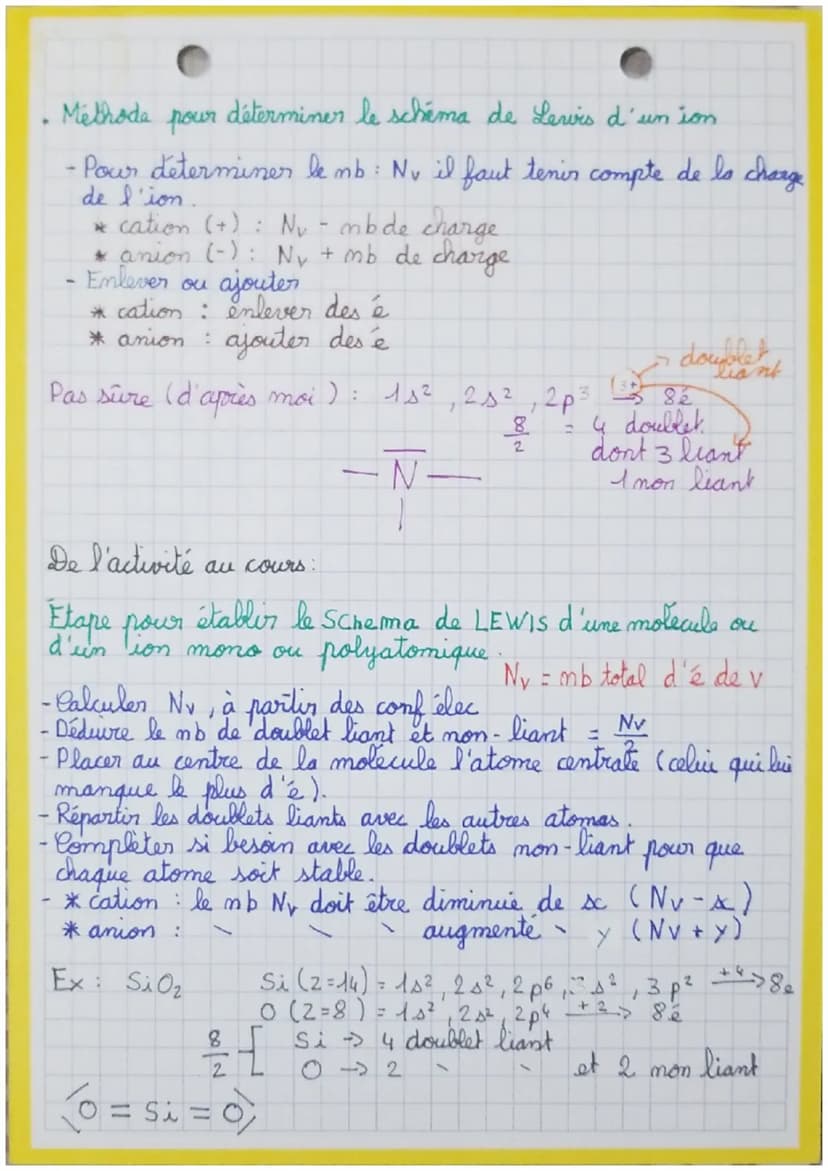 . Méthode pour déterminer le schéma de Lewis d'un ion
- Pour déterminer le nb : Nv il faut tenir compte de la charge
de l'ion.
* cation (+) : Nv - nb de charge
* anion (-) : Nv + nb de charge
- Enlever ou ajouter
* cation : enlever des é
* anion : ajouter des é
doublet
liant
Pas sûre (d'après moi) : 1s², 2s², 2p³ (3+)→ 8é
8/2 = 4 doublet.
dont 3 liant
1 non liant
— N —
De l'activité au cours :
Etape pour établir le schema de LEWIS d'une molécule ou
d'un ion mono ou polyatomique.
Nv = nb total d'é de v
- Calculer Nv, à partir des conf élec
- Déduire le nb de doublet liant et non-liant = Nv/2
- Placer au centre de la molécule l'atome centrale (celui qui lui
manque le plus d'é).
- Répartir les doublets liants avec les autres atomes.
- Compléter si besoin avec les doublets non-liant pour que
chaque atome soit stable.
- * cation : le nb Nv doit être diminué de x (Nv - x)
* anion : \ \ \ augmenté \ y (Nv + y)
Ex : SiO₂ Si (Z=14) = 1s², 2s², 2p⁶, 3s², 3p² +4→ 8é
O (Z=8) = 1s², 2s², 2p⁴ +2→ 8é
8/2 [ Si → 4 doublet liant
O → 2 \ \ et 2 non liant
⟨O = Si = O⟩